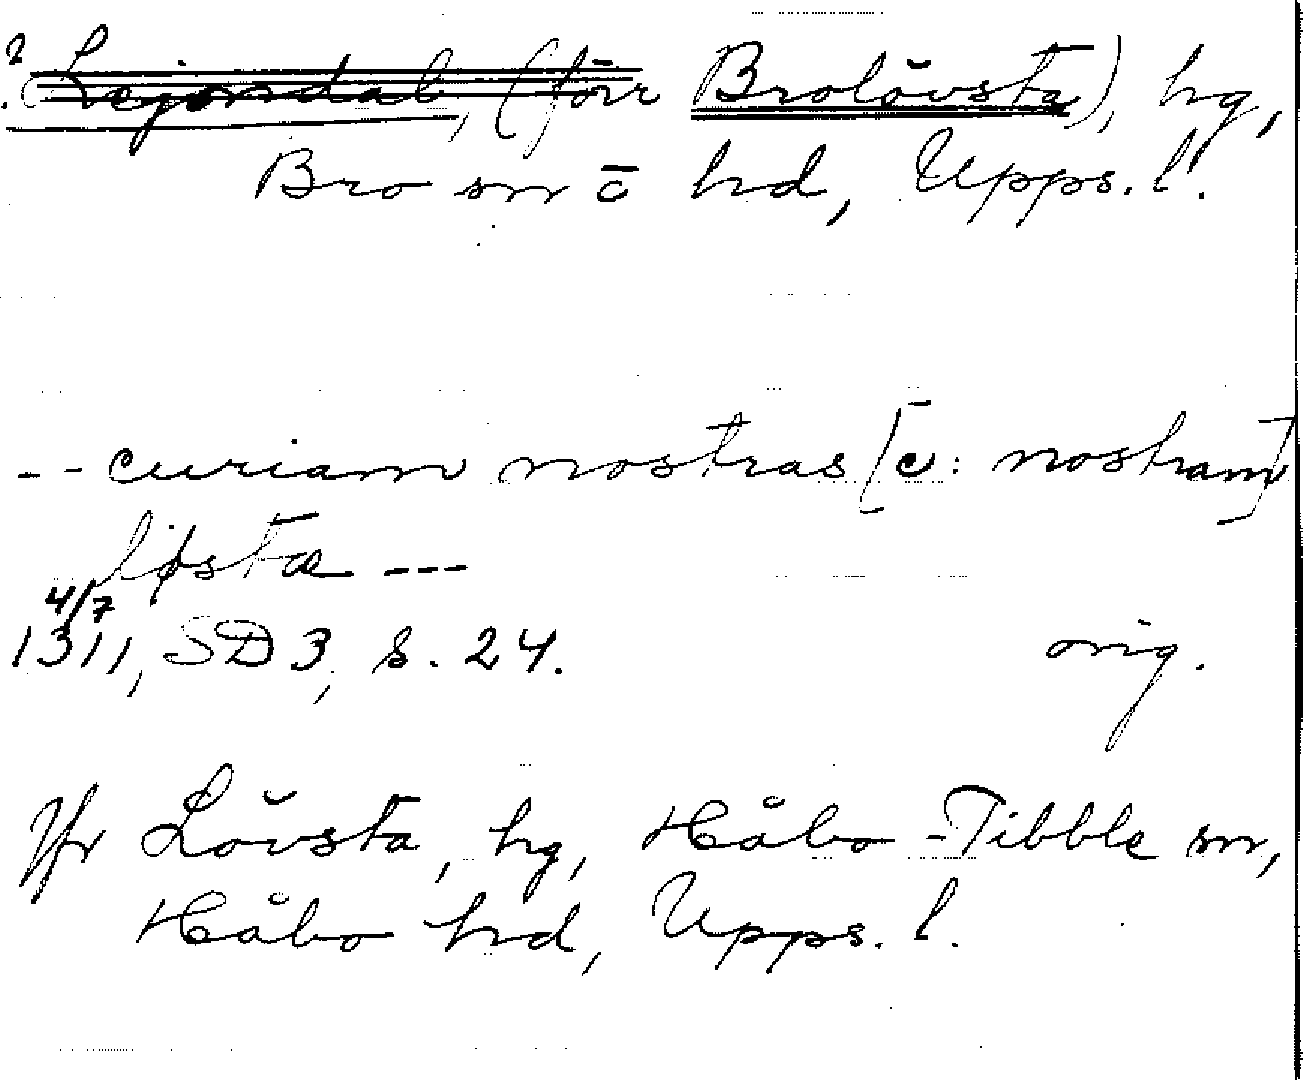 ? (Lejondal, (förr Brolövsta), hg,
Bro sn o hd, Upps. l.
-- curiam nostras [ɔ: nostram]
løsta ---
4/7
1311, SD 3, s. 24. orig.
Jfr Lövsta, hg, Håbo-Tibble sn,
Håbo hd, Upps. l.